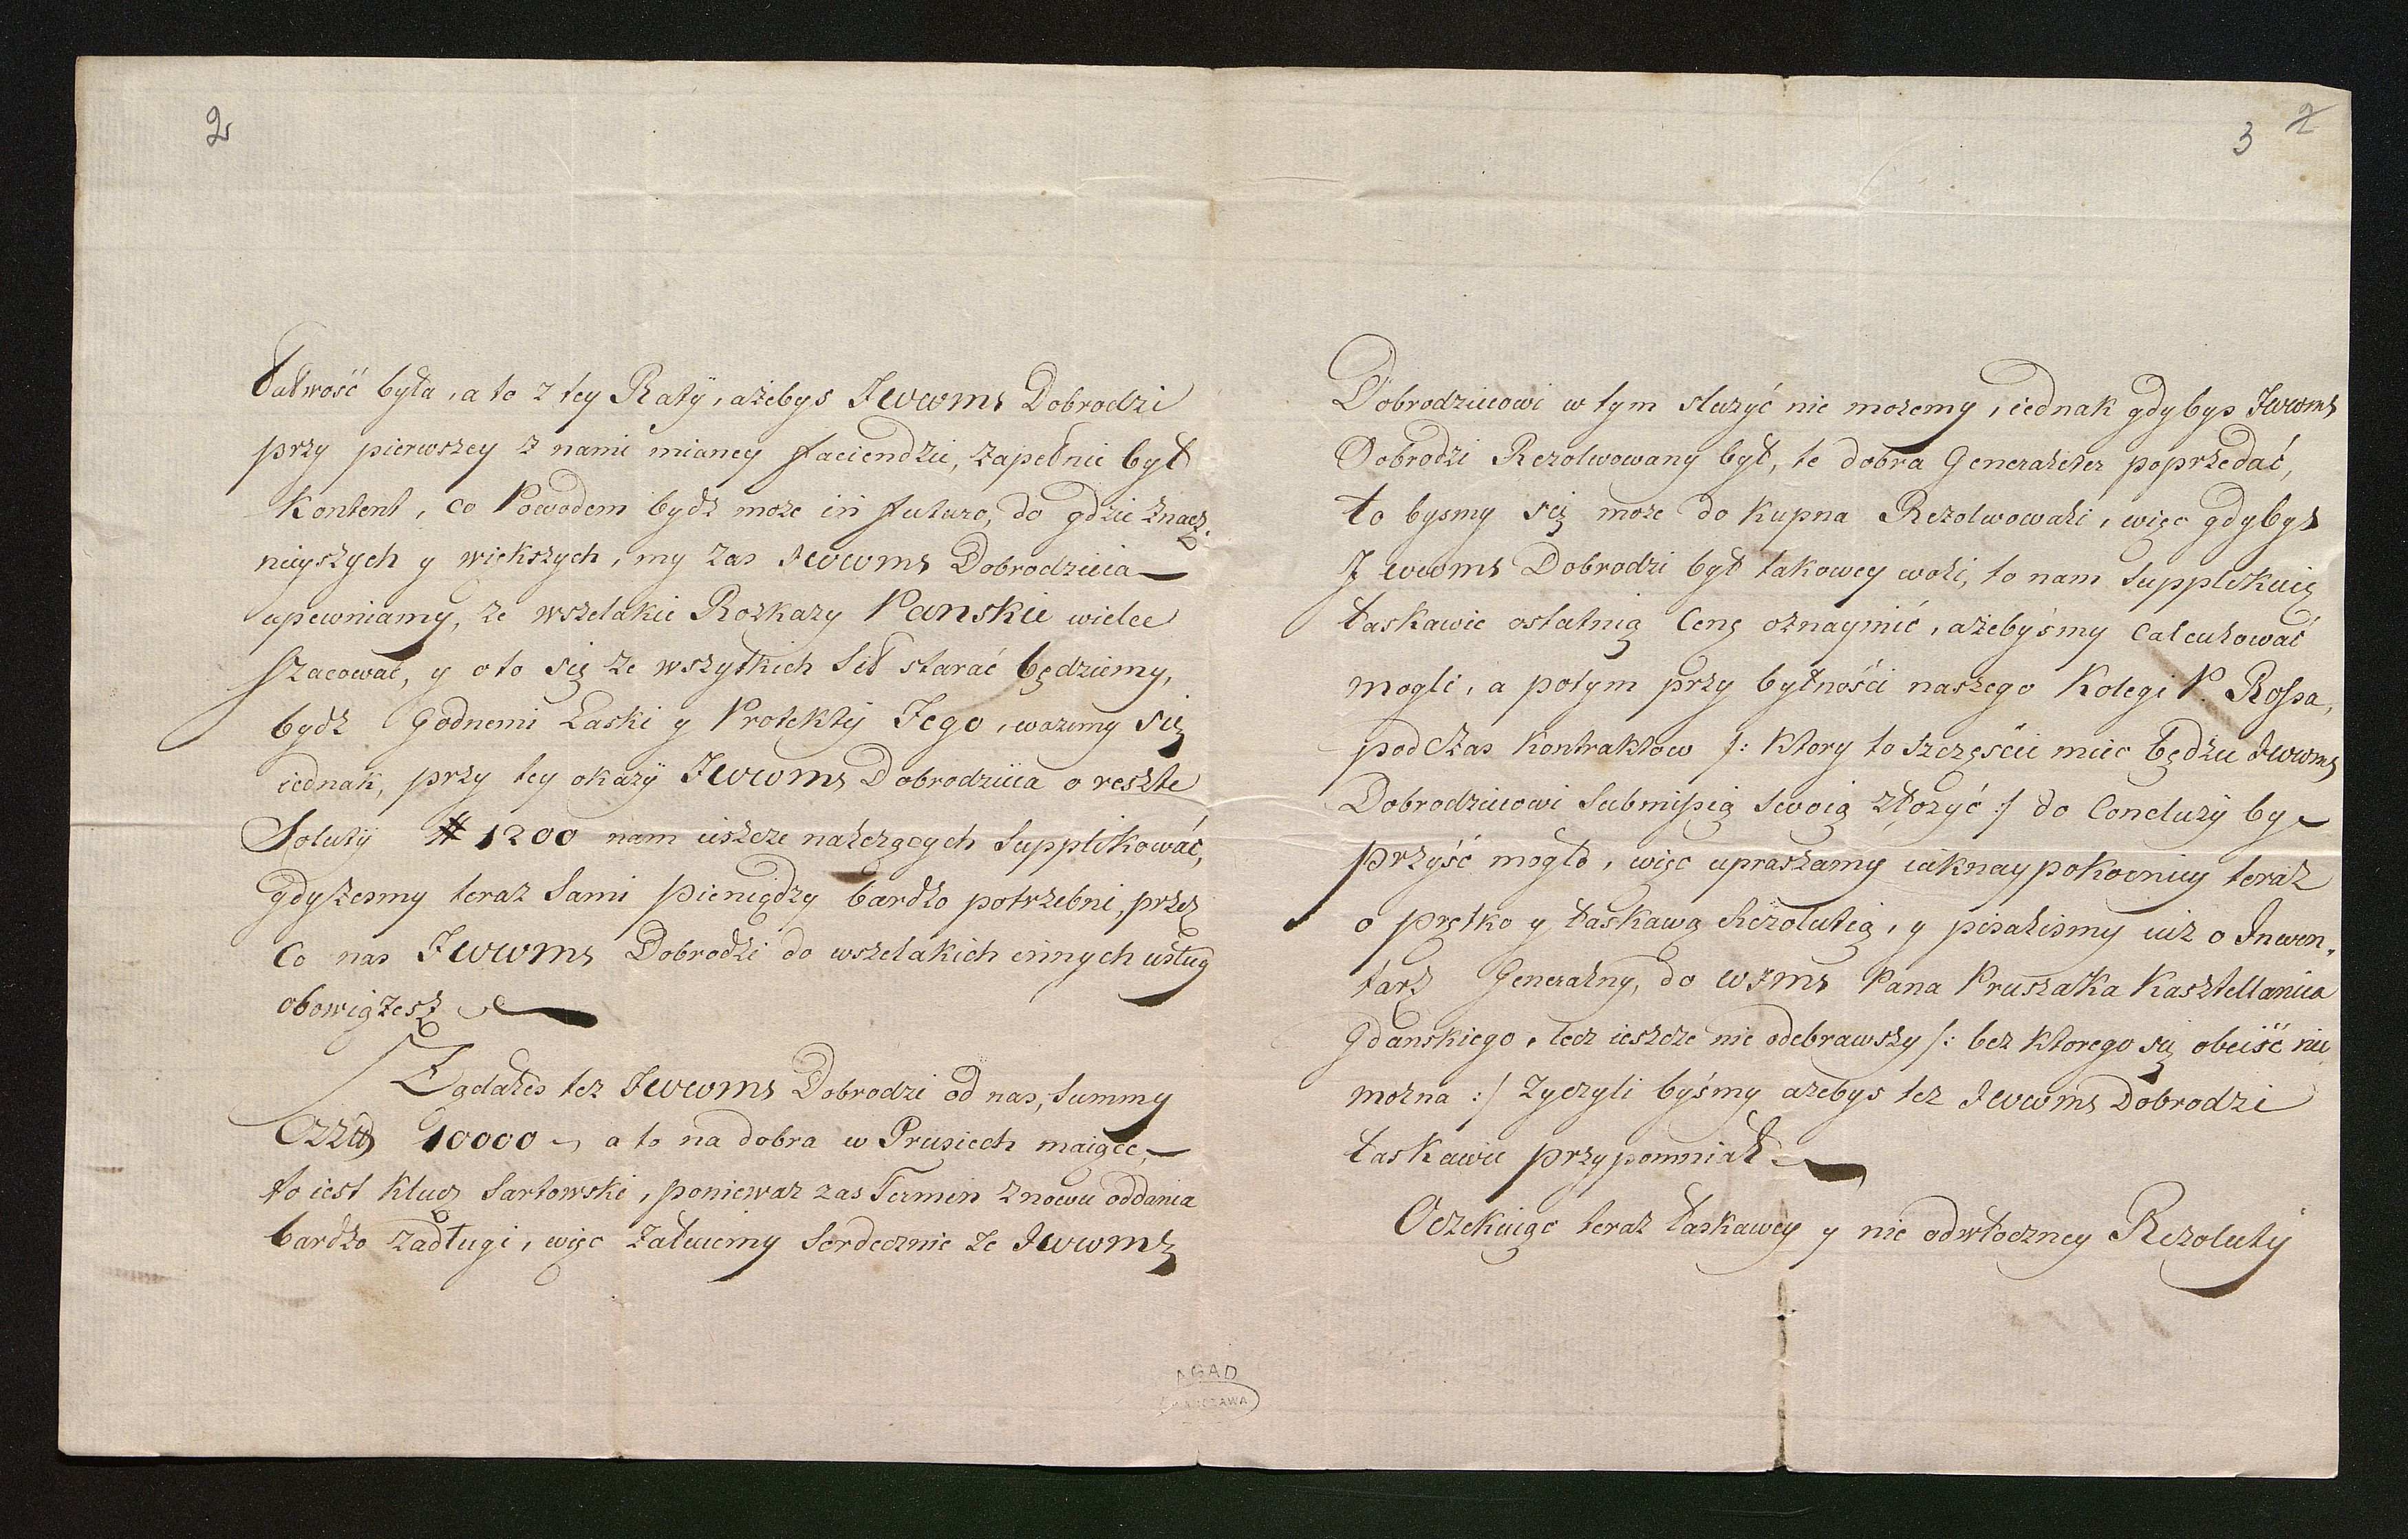 2
łatwość była, a to z tey Raty, ażebys JWWMs Dobrodzi
przy pierwszey z nami mianey faciendzie, zapełnie był
Kontent, co Powodem bydz może in futuro, do gdzie znacz-
nieyszych y większych, my zas JWWMs Dobrodzieia
upewniamy, że wszelakie Rozkazy Panskie wielce
szacować, y oto się ze wszytkich sił starać będziemy,
bydz Godnemi Łaski y Protekty Jego, ważemy się
iednak, przy tey okazy JWWMs Dobrodzieia o reszte
Soluty # 1200 nam ieszcze należących Supplikować,
gdyżesmy teraz Sami pieniędzy bardzo potrzebni, przez
Co nas JWWMs Dobrodzi do wszelakich innych usług
obowiążesz
Żądałes tez JWWMs Dobrodzi od nas, Summy
10000 a to na dobra w Prusiech maiące,
to iest Klucz Sartowski, poniewaz zas Termin znowu oddania
bardzo zadługi, więc żałuiemy Serdecznie że JWWMs
3 2
Dobrodzieiowi w tym służyć nie możemy, iednak gdybys JWWMs
Dobrodzi Rezolwowany był, te dobra Generaliter poprzedać,
to bysmy się może do Kupna Rezolwowali, więc gdybys
JWWMs Dobrodzi był takowey woli, to nam Supplikuię
łaskawie ostatnią Cenę oznaymić, ażebyśmy Calculować
mogli, a potym przy bytności naszego Kolegi P. Rossa,
podczas Kontraktow /: Ktory to szczęscie miec będzie JWWMs
Dobrodzieiowi Submissią swoią złożyć :/ do Concluzy by
przyść mogło, więc upraszamy iaknaypokorniey teraz
o prętko y łaskawą Rezolutią, y pisalismy iuż o Inwen-
tarz Generalny, do WJMs Pana Pruszaka Kasztellanica
Gdanskiego, lecz ieszcze nie odebrawszy /: bez Ktorego się obeiść nie
można :/ Zyczyli byśmy ażebys tez JWWMs Dobrodzi
łaskawie przypomniał
Oczekuiąc teraz łaskawey y nie odwłoczney Rezoluty
AGAD
WARSZAWA